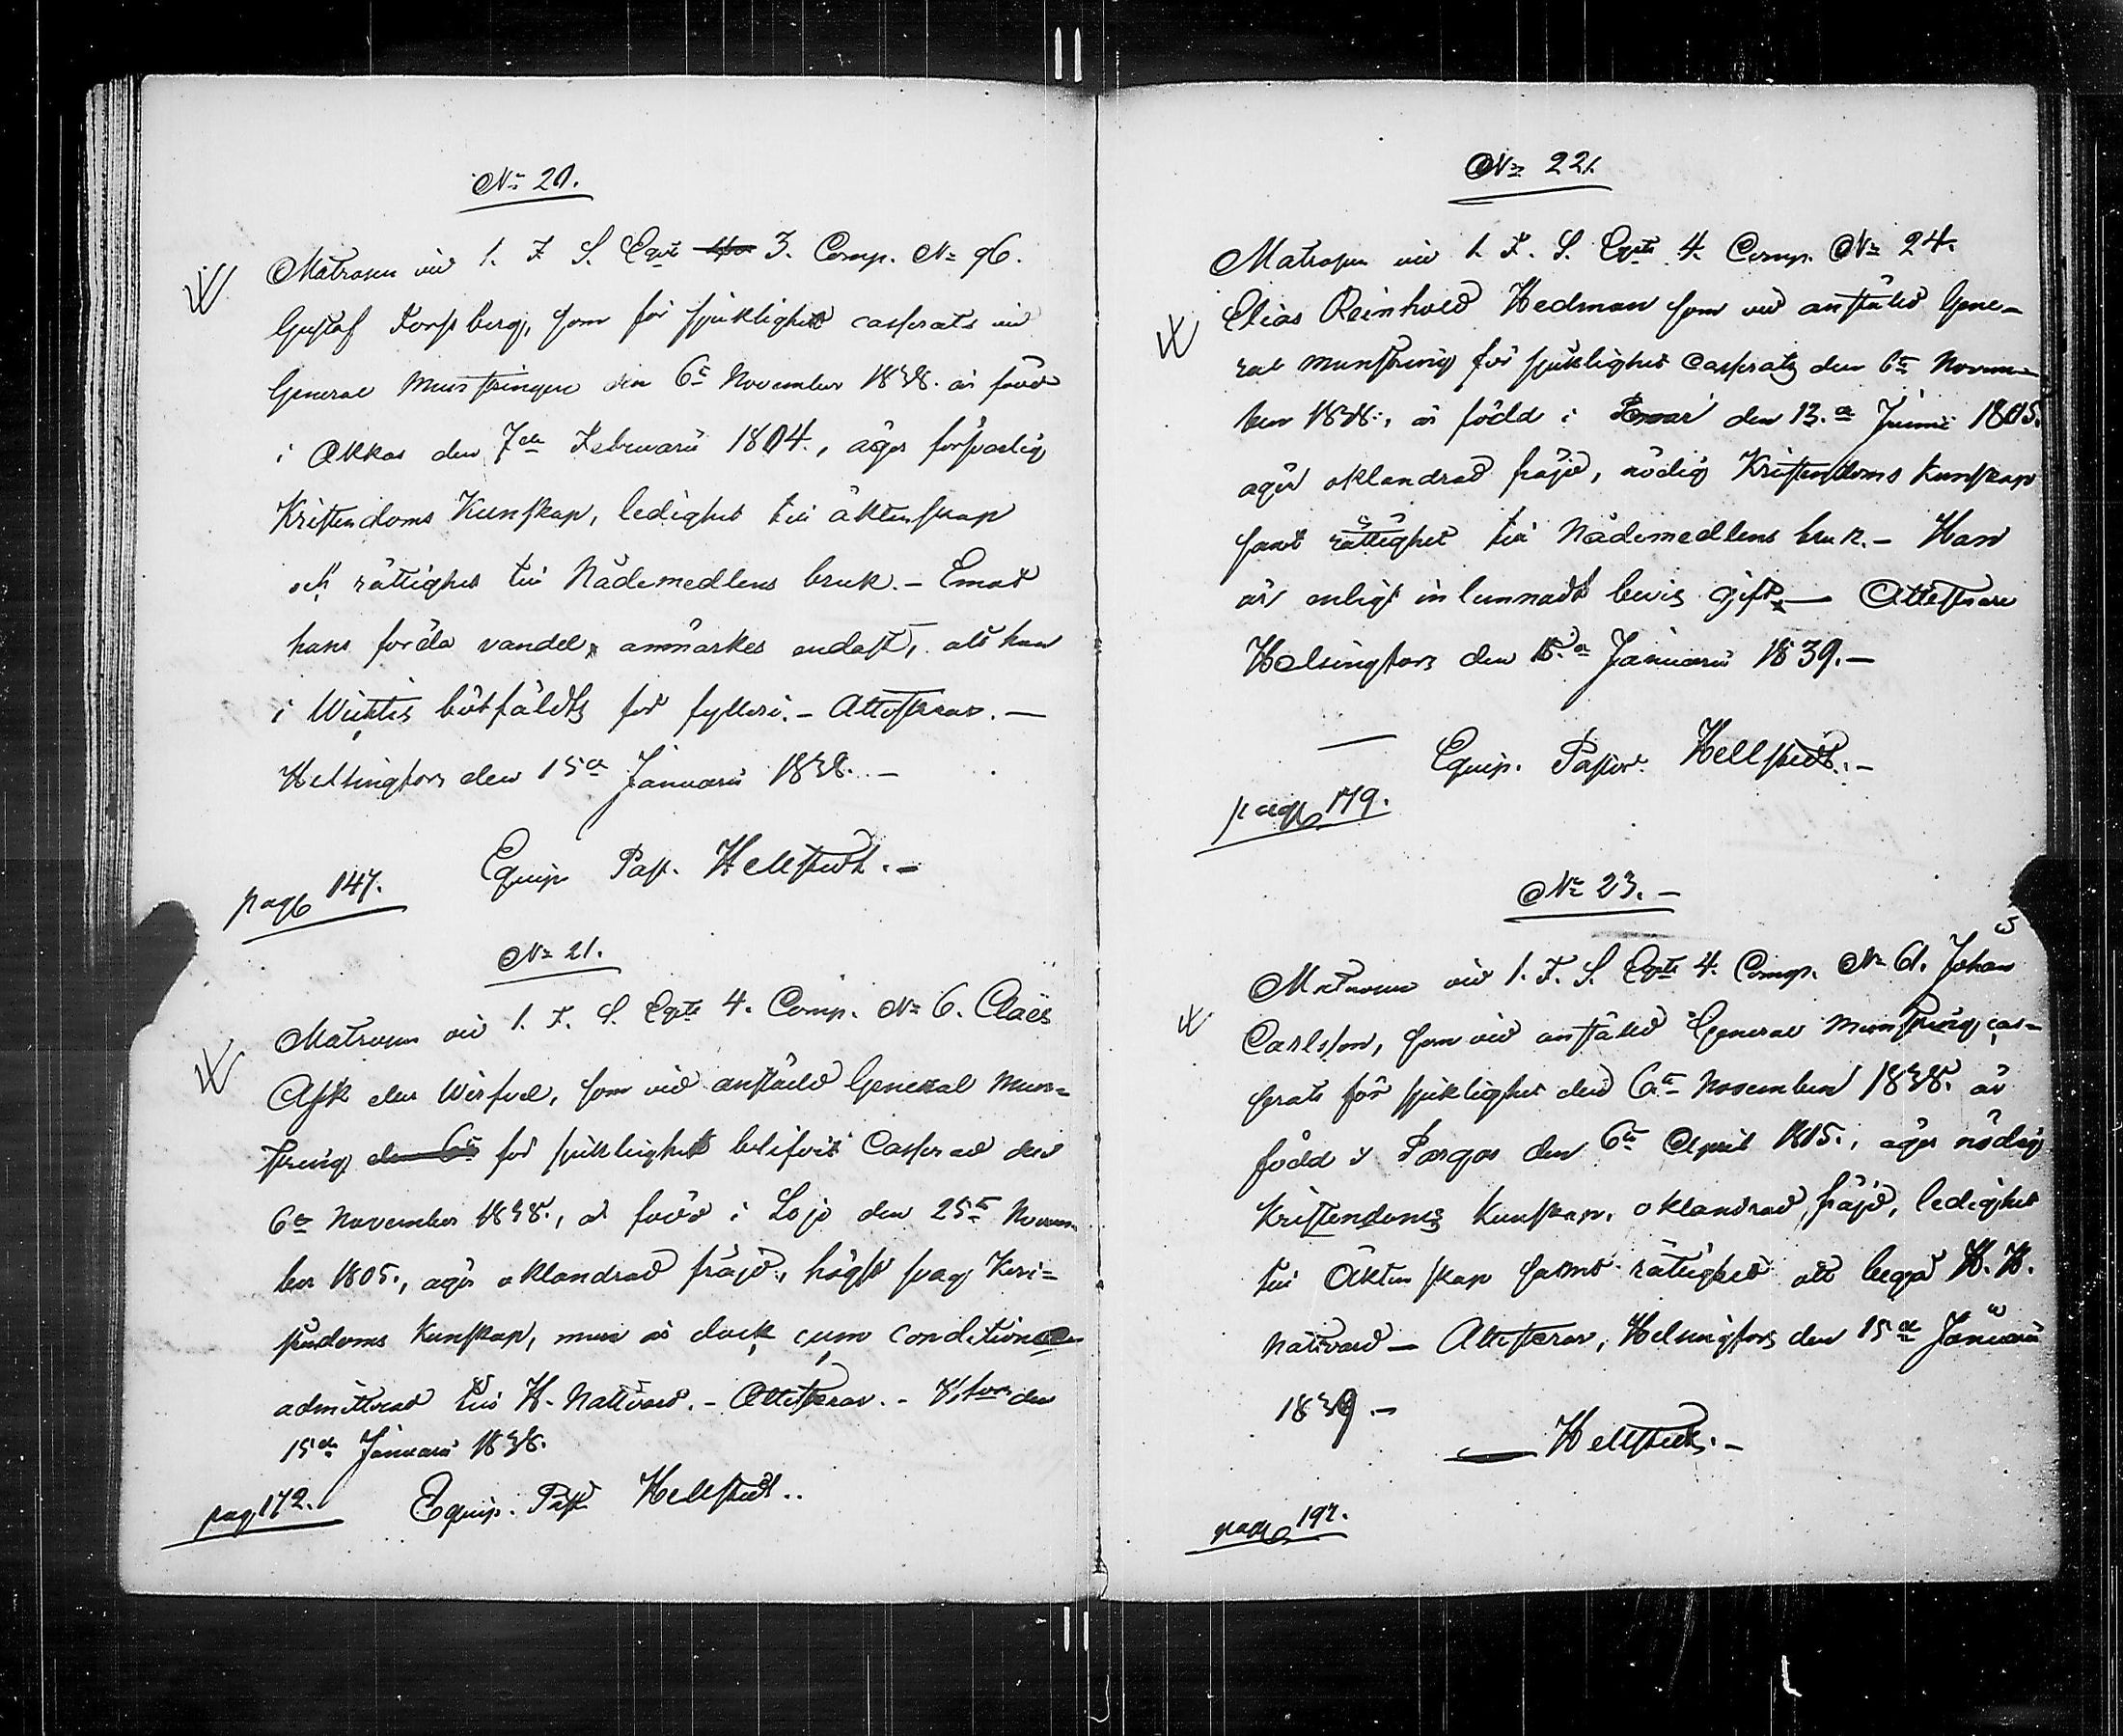 No 20.
Matrosen vid 1. F. S. Eqvt 3. Comp. No 96.
Gustaf Forssberg, som för sjuklighet casserats vid
General Munstringen den 6te November 1838. är född
i Akkas den 7de Februarii 1804., äger försvarlig
Kristendoms Kunskap, ledighet till äktenskap
och rättighet till Nådemedlens bruk. – Emot
hans förda vandel, anmärkes endast, att han
i Wichtis bötfäldts för fylleri. – Attesterar. –
Helsingfors den 15de Januarii 1838. –
Equip. Past. Hellstedt. –
pag 147.
No 21.
Matrosen vid 1. F. S. Eqvts 4. Comp. No 6. Claës
Ask eller Wirfvel, som vid anstäld General Mun-
string den 6te för sjuklighet blifvit Casserad den
6te November 1838., är född i Lojo den 25te Novem-
ber 1805., äger oklandrad fräjd, högst svag Kri-
stendoms Kunskap, men är dock cum conditione
admitterad till H. Nattvard. – Attesterar. – H:fors den
15de Januarii 1838.
Equip. Past. Hellstedt..
pag 172.
No 22.
Matrosen vid 1. F. S. Eqvts 4. Comp. No 24.
Elias Reinhold Hedman som vid anstäld Gene-
ral munstring för sjuklighet casserats den 6te Novem-
ber 1838., är född i den 13.de Junii 1805.
äger oklandrad fräjd, nödig Kristendoms kunskap
samt rättighet till Nådemedlens bruk. – Han
är enligt inlemnadt bevis gift. – Attesterar
Helsingfors den 15.de Januarii 1839. –
Equip. Pastor. Hellstedt. –
pag 179.
No 23. –
Matrosen vid 1. F. S. Eqvts 4. Comp. No 61. Johan
Carlsson, som vid anstäld General Munstring cas-
serats för sjuklighet den 6te November 1838. är
född i Pargas den 6te April 1815., äger nödig
Kristendoms Kunskap, oklandrad fräjd, ledighet
till Äktenskap samt rättighet att begå H. H.
Nattvard – Attesterar, Helsingfors den 15de Januarii
1839. –
Hellstedt. –
pag 197.